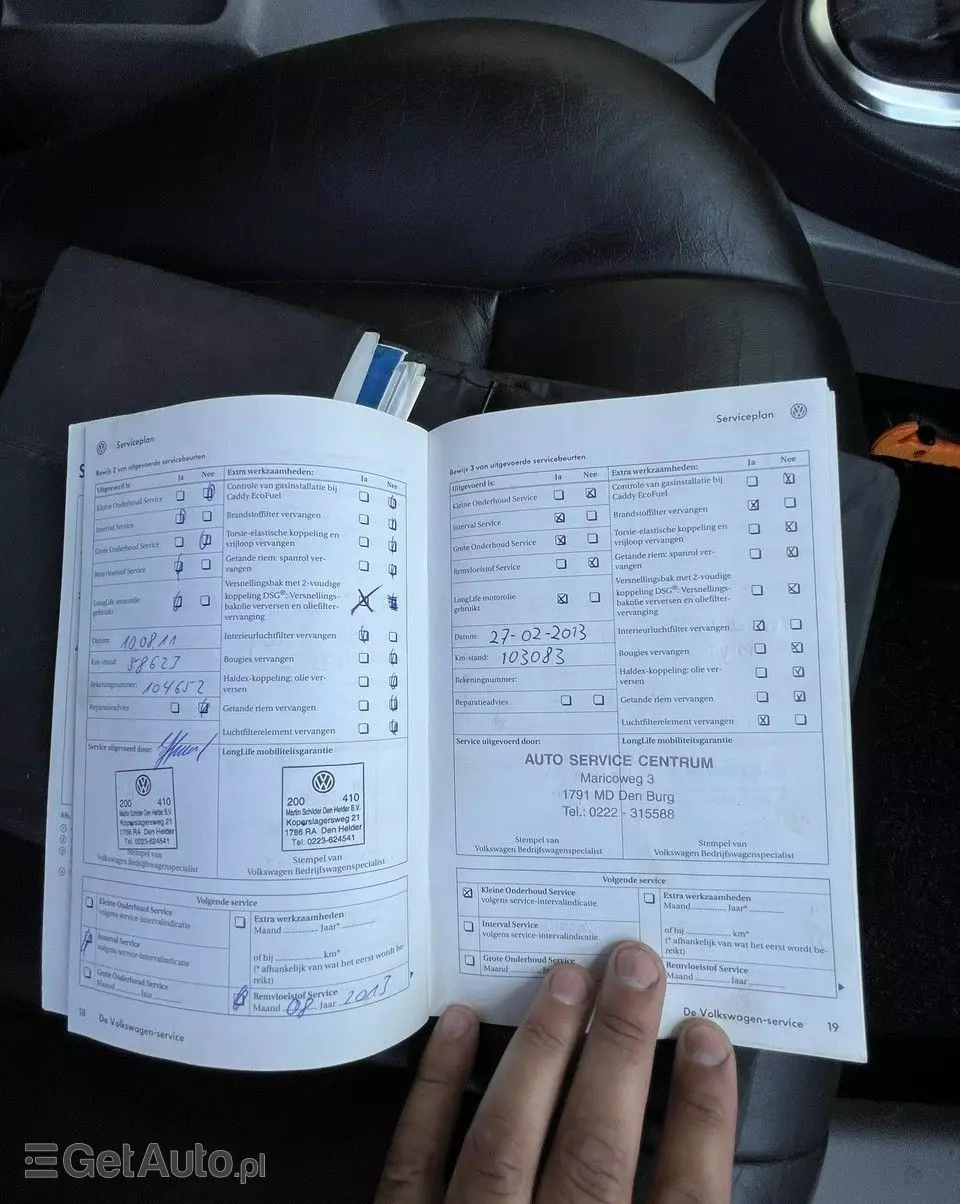 Serviceplan
Bewijs 2 van uitgevoerde servicebeurten
Uitgevoerd is:
Ja
Nee
Kleine Onderhoud Service
Interval Service
Grote Onderhoud Service
Remvloeistof Service
LongLife motorolie
gebruikt
Datum: 10 08 11
Km-stand: 58623
Rekeningnummer: 104652
Reparatieadvies
Extra werkzaamheden:
Ja
Nee
Controle van gasinstallatie bij
Caddy EcoFuel
Brandstoffilter vervangen
Torsie-elastische koppeling en
vrijloop vervangen
Getande riem: spanrol ver-
vangen
Versnellingsbak met 2-voudige
koppeling DSG®: Versnellings-
bakolie verversen en oliefilter-
vervanging
Interieurluchtfilter vervangen
Bougies vervangen
Haldex-koppeling: olie ver-
versen
Getande riem vervangen
Luchtfilterelement vervangen
Service uitgevoerd door:
LongLife mobiliteitsgarantie
200 410
Martin Schilder Den Helder B.V.
Koperslagersweg 21
1786 RA Den Helder
Tel. 0223-624541
Stempel van
Volkswagen Bedrijfswagenspecialist
200 410
Martin Schilder Den Helder B.V.
Koperslagersweg 21
1786 RA Den Helder
Tel. 0223-624541
Stempel van
Volkswagen Bedrijfswagenspecialist
Volgende service
Kleine Onderhoud Service
volgens service-intervalindicatie
Interval Service
volgens service-intervalindicatie
Grote Onderhoud Service
Maand ............ Jaar ............
Extra werkzaamheden
Maand ............ Jaar* ............
of bij ............ km*
(* afhankelijk van wat het eerst wordt be-
reikt)
Remvloeistof Service
Maand 08 Jaar 2013
18 De Volkswagen-service
Serviceplan
Bewijs 3 van uitgevoerde servicebeurten
Uitgevoerd is:
Ja
Nee
Kleine Onderhoud Service
Interval Service
Grote Onderhoud Service
Remvloeistof Service
LongLife motorolie
gebruikt
Datum: 27-02-2013
Km-stand: 103083
Rekeningnummer:
Reparatieadvies
Extra werkzaamheden:
Ja
Nee
Controle van gasinstallatie bij
Caddy EcoFuel
Brandstoffilter vervangen
Torsie-elastische koppeling en
vrijloop vervangen
Getande riem: spanrol ver-
vangen
Versnellingsbak met 2-voudige
koppeling DSG®: Versnellings-
bakolie verversen en oliefilter-
vervanging
Interieurluchtfilter vervangen
Bougies vervangen
Haldex-koppeling: olie ver-
versen
Getande riem vervangen
Luchtfilterelement vervangen
Service uitgevoerd door:
LongLife mobiliteitsgarantie
AUTO SERVICE CENTRUM
Maricoweg 3
1791 MD Den Burg
Tel.: 0222 - 315588
Stempel van
Volkswagen Bedrijfswagenspecialist
Stempel van
Volkswagen Bedrijfswagenspecialist
Volgende service
Kleine Onderhoud Service
volgens service-intervalindicatie
Interval Service
volgens service-intervalindicatie
Grote Onderhoud Service
Maand ............ Jaar
Extra werkzaamheden
Maand ............ Jaar* ............
of bij ............ km*
(* afhankelijk van wat het eerst wordt be-
reikt)
Remvloeistof Service
Maand ............ Jaar ............
De Volkswagen-service 19
GetAuto.pl